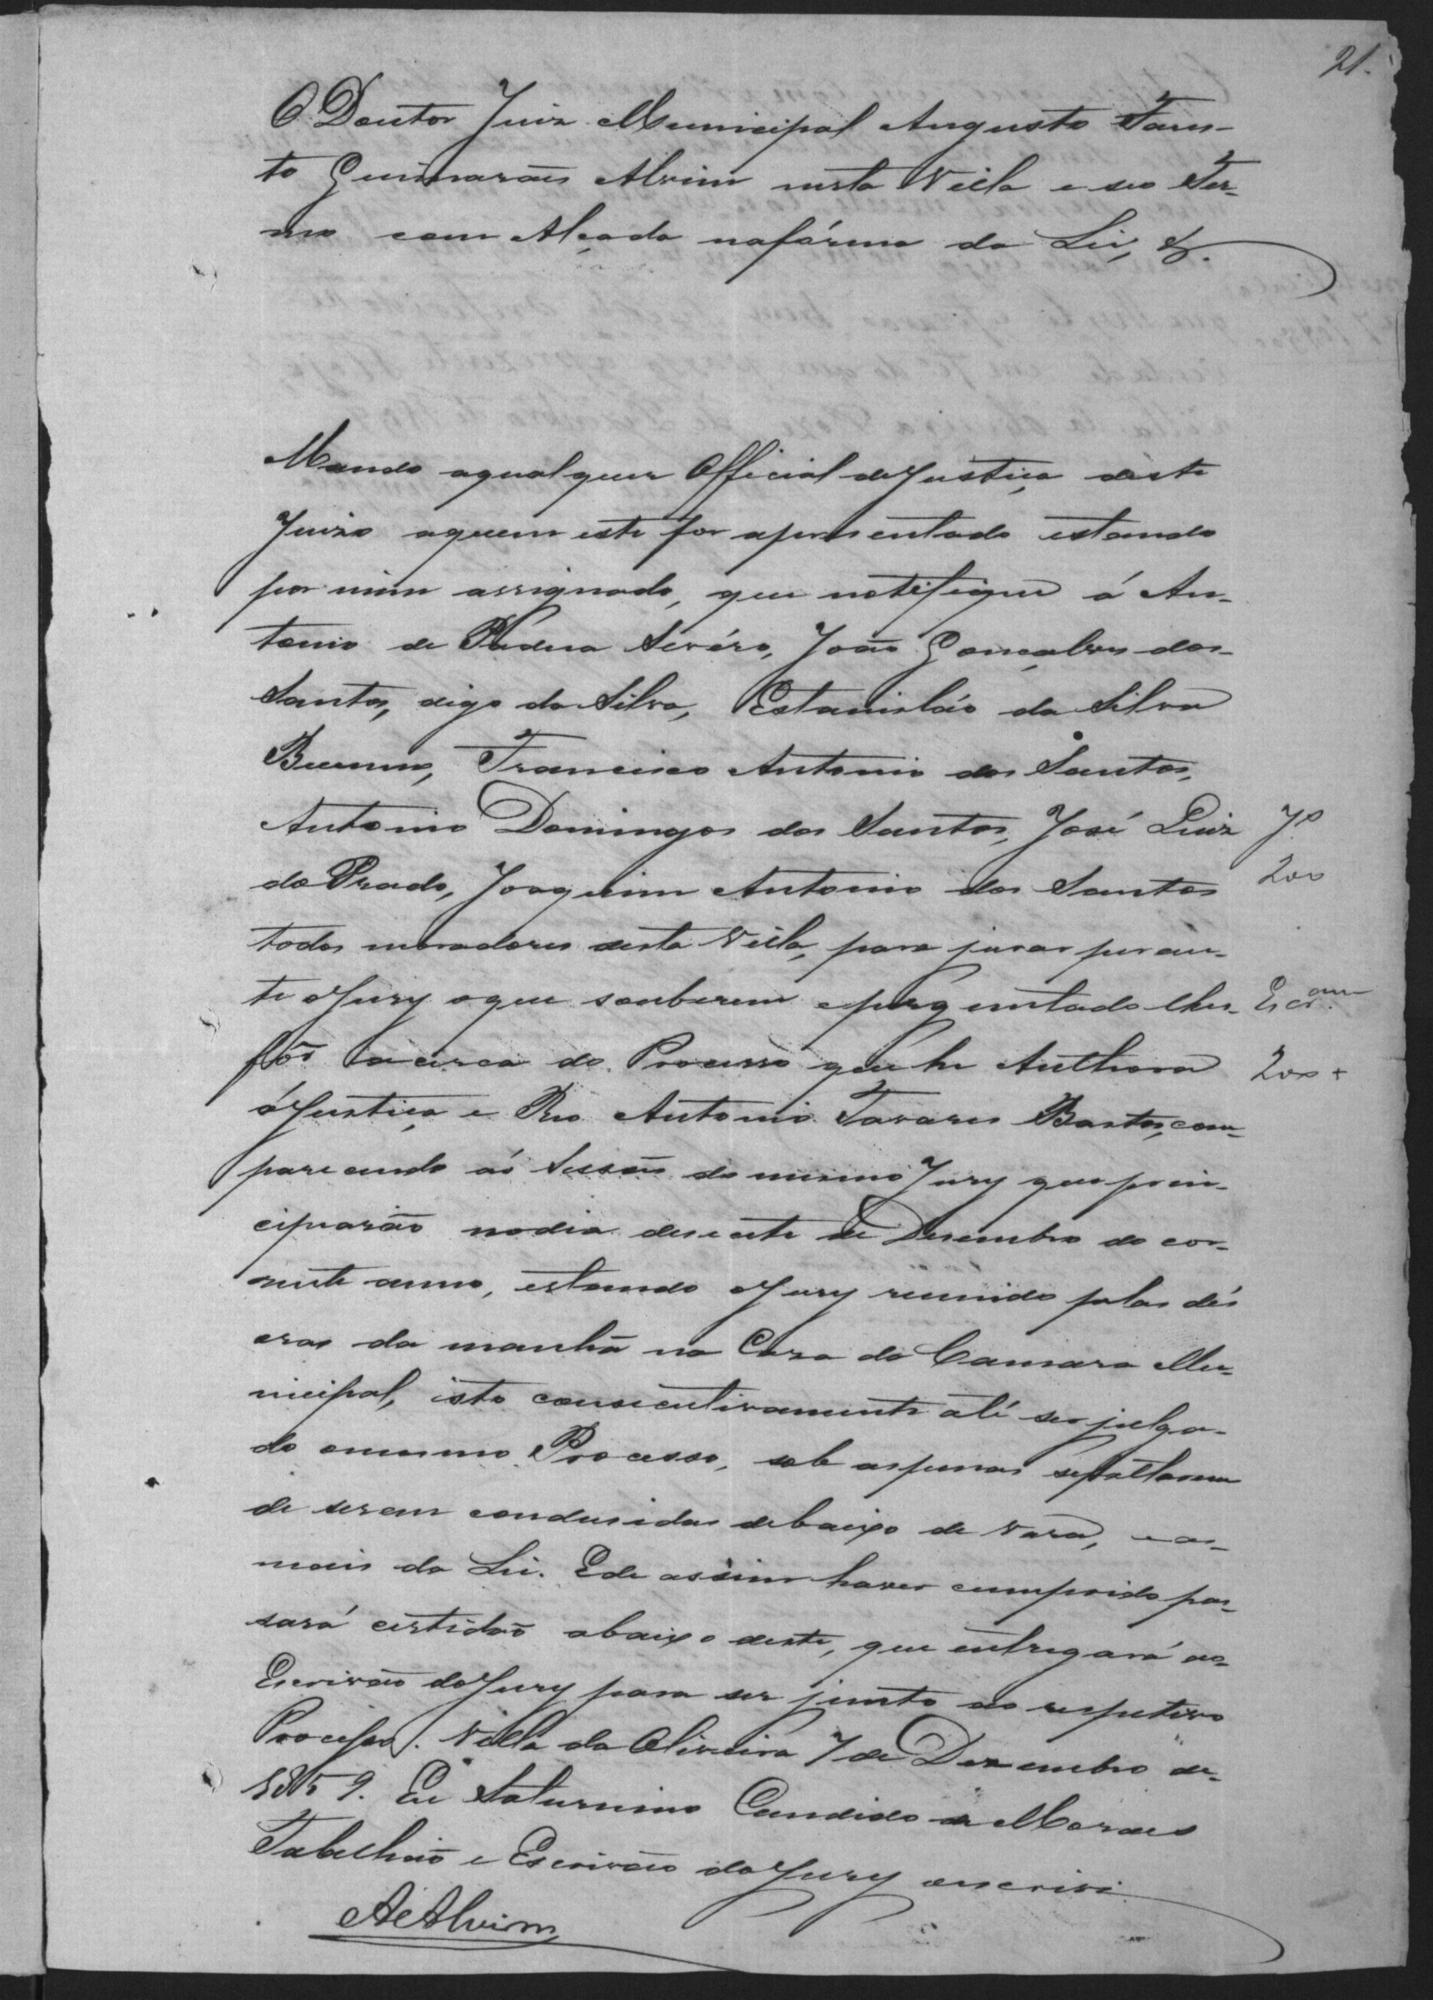 21.
O Doutor Juiz Municipal Augusto Faus-
to Guimarães Alvim nesta Villa e seo Ter-
mo com Alçada na fórma da Lei, &.
Mando aqualquer Official de Justiça deste
Juizo aquem este for apresentado estando
por mim assignado, que notifique á An-
tonio de Padua Sevéro, João Gonçalves dos
Santos, digo da Silva, Estanisláo da Silva
Buenno, Francisco Antonio dos Santos,
Antonio Domingos dos Santos, José Luiz
do Prado, Joaquim Antonio dos Santos
todos moradores desta Villa, para jurar peran-
te o Jury o que souberem e perguntado lhes
fôr acerca do Processo que he Authora
á Justiça e Reo Antonio Tavares Bastos, com-
parecendo ás Sessões do mesmo Jury que prin-
cipiarão no dia desesete de Desembro do cor-
rente anno, estando o Jury reunido pelas dés
oras da manhã na Casa da Camara Mu-
nicipal, isto consecutivamente até ser julga-
do o mesmo Processo, sob as penas se faltarem
de serem condusidas debaixo de vara, e as
mais da Lei. E de assim haver cumprido pas-
sará certidão abaixo deste, que entregará ao
Escrivão do Jury para ser junto ao respetivo
Processo. Villa da Oliveira 7 de Dezembro de
1859. Eu Saturnino Candido de Moraes
Tabelhião e Escrivão do Jury o escrivi
AeAlvim
Jº
200
Escram
200 +